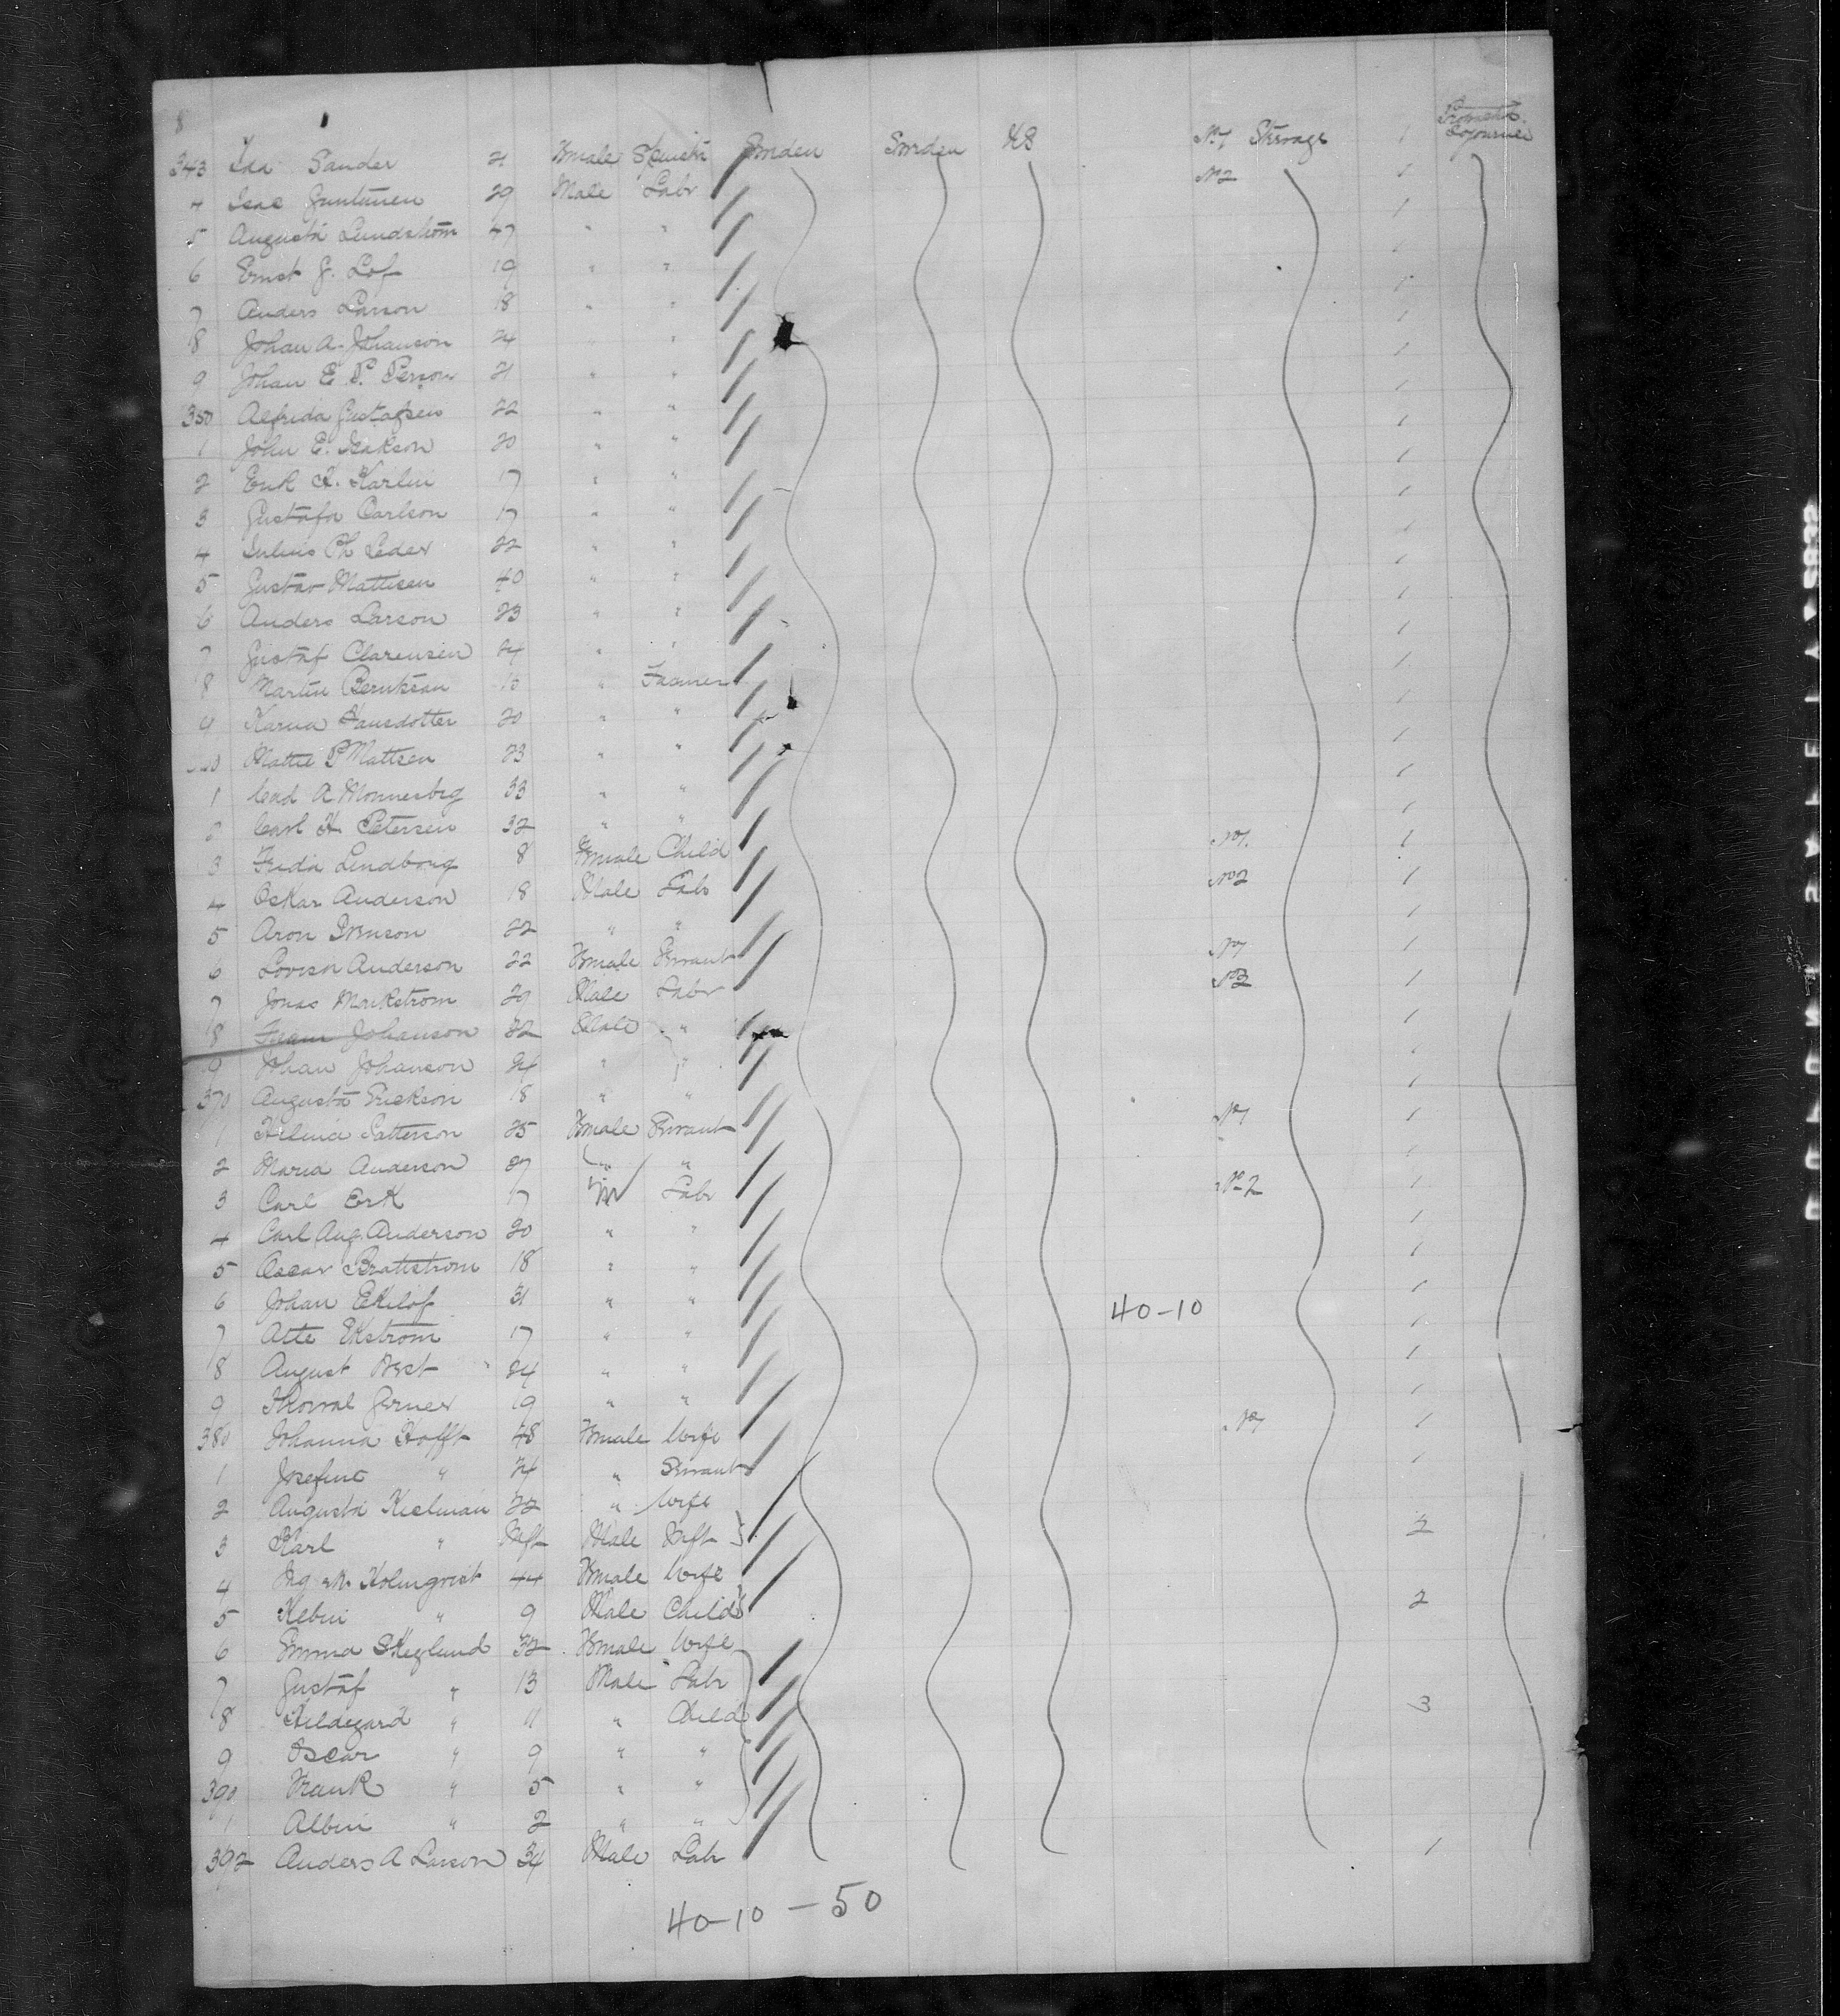 8
Protracted Sojourner
343 Ida Sander 21 Female Sweden Sweden US No 1 Steerage 1
4 Isac Juntunen 29 Male Labr No 2 1
5 Augusta Lundstrom 47 " " 1
6 Ernst J. Lof 19 " " 1
7 Anders Larson 18 " " 1
8 Johan A. Johanson 24 " " 1
9 Johan E. P. Person 21 " " 1
350 Alfrida Gustafsen 22 " " 1
1 John E. Isakson 20 " " 1
2 Erik A. Karlin 17 " " 1
3 Gustafa Carlson 17 " " 1
4 Julius Ph Leder 22 " " 1
5 Gustav Mattisen 40 " " 1
6 Anders Larson 23 " " 1
7 Gustaf Clarensen 24 " " 1
8 Martin Berntson " Farmer 1
9 Karna Hansdotter 20 " " 1
Mattie P Mattsen 23 " " 1
1 33 " " 1
2 Carl H. Petersen 32 " " 1
3 Frida Lindborg 8 Female Child No 1. 1
4 Oskar Anderson 18 Male Labr No 2 1
5 Aron 22 " " 1
6 Lovisa Anderson 22 Female Servant No 1 1
7 Jonas Morkstrom 29 Male Labr 1
8 Johanson 22 Male " 1
9 Johan Johanson 24 " " 1
370 Augusta Erickson 18 " " 1
1 Hilma Patterson 25 Female Servant No 1 1
2 Maria Anderson 27 " " " 1
3 Carl Erk 17 M Labr No 2 1
4 Carl Aug. Anderson 20 " " 1
5 Oscar Brattstrom 18 " " 1
6 Johan Ekelof 31 " " 40-10 1
7 Atte Ekstrom 17 " " 1
8 August West 24 " " 1
9 19 " " 1
380 Johanna Hofft 48 Female Wife No 1 1
1 Josefine " 24 " Servant 1
2 Augusta Kielman 22 " Wife
3 Karl " Inft Male Inft 2
4 Holmqvist 44 Female Wife
5 " 9 Male Child 2
6 Emma Skeglund 32 Female Wife
7 Gustaf " 13 Male Labr
8 Hildegard " 11 " Child 3
9 Oscar " 9 " "
390 Frank " 5 " "
1 Albin " 2 " "
392 Anders A Larson 34 Male Labr 1
40-10-50